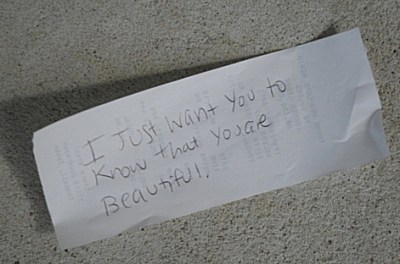 I Just want you to
Know that you are
Beautiful.